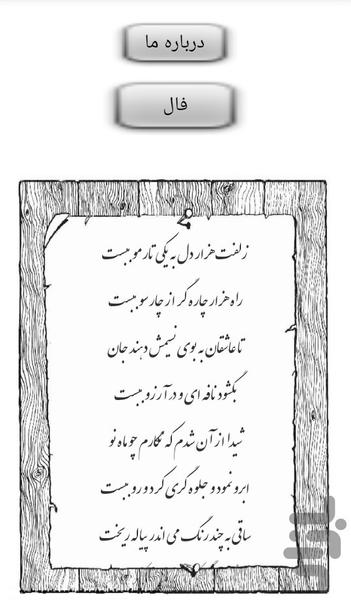 درباره ما
فال
زلفت هزار دل به یکی تار مو ببست
راه هزار چاره گر از چار سو ببست
تا عاشقان به بوی نسیمش دهند جان
بگشود نافه ای و در آرزو ببست
شیدا از آن شدم که نگارم چو ماه نو
ابرو نمود و جلوه گری کرد و رو ببست
ساقی به چند رنگ می اندر پیاله ریخت